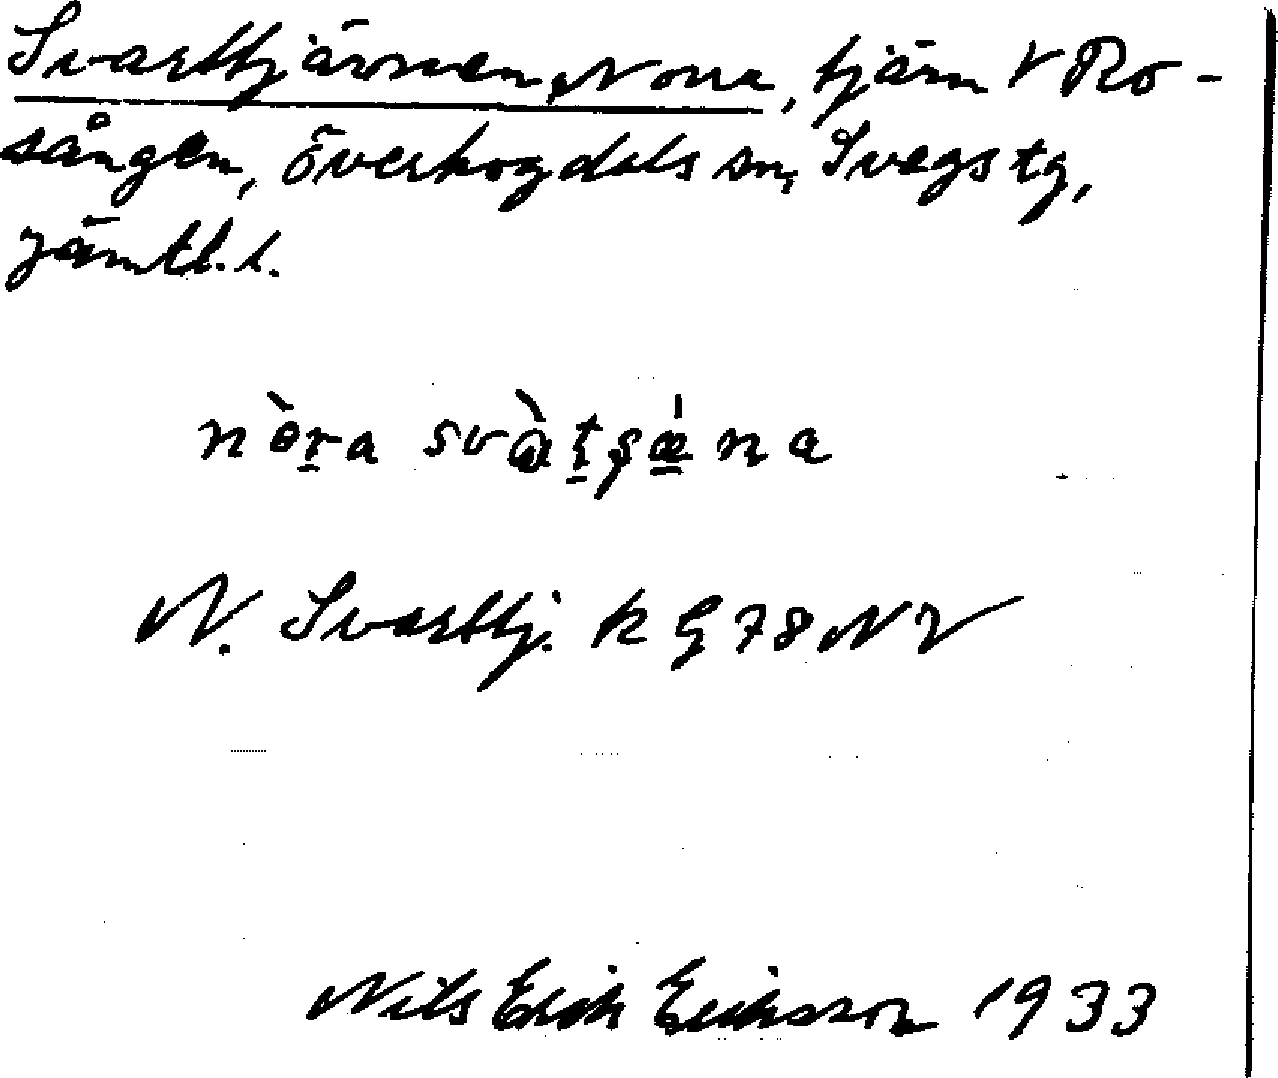 Svarttjärnen, Norra, tjärn V Ro-
sången, Överhogdals sn, Svegs tg,
Jämtl. l.
nòr̠a svàt̠ʂǽna
N. Svarttj. k G 78 NV
Nils Erik Eriksson 1933